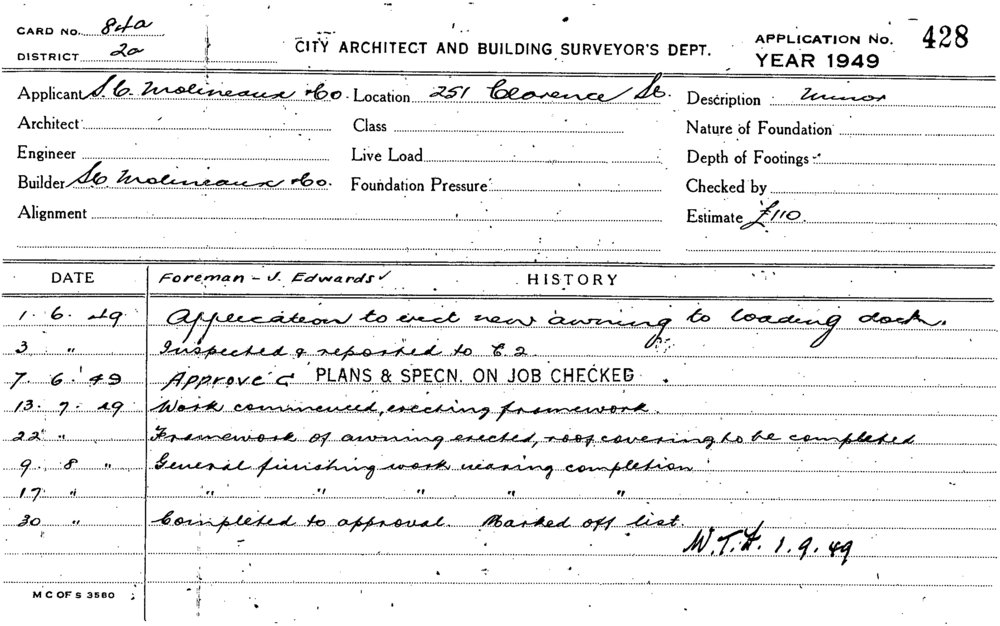 CARD No. 84a
DISTRICT 2a
CITY ARCHITECT AND BUILDING SURVEYOR'S DEPT.
APPLICATION No. 428
YEAR 1949
Applicant S.C. Molineaux & Co. Location 251 Clarence St. Description Minor
Architect Class Nature of Foundation
Engineer Live Load Depth of Footings
Builder S.C. Molineaux & Co. Foundation Pressure Checked by
Alignment Estimate £110.
DATE Foreman - J. Edwards HISTORY
1. 6. 49 Application to erect new awning to loading dock.
3 " Inspected & reported to E.2
7. 6. 49 Approved PLANS & SPECN. ON JOB CHECKED.
13. 7. 49 Work commenced, erecting framework.
22 " Framework of awning erected, roof covering to be completed
9. 8 " General finishing work nearing completion
17 " " " " " "
30 " Completed to approval. Marked off list.
1.9.49
M C OF S 3580